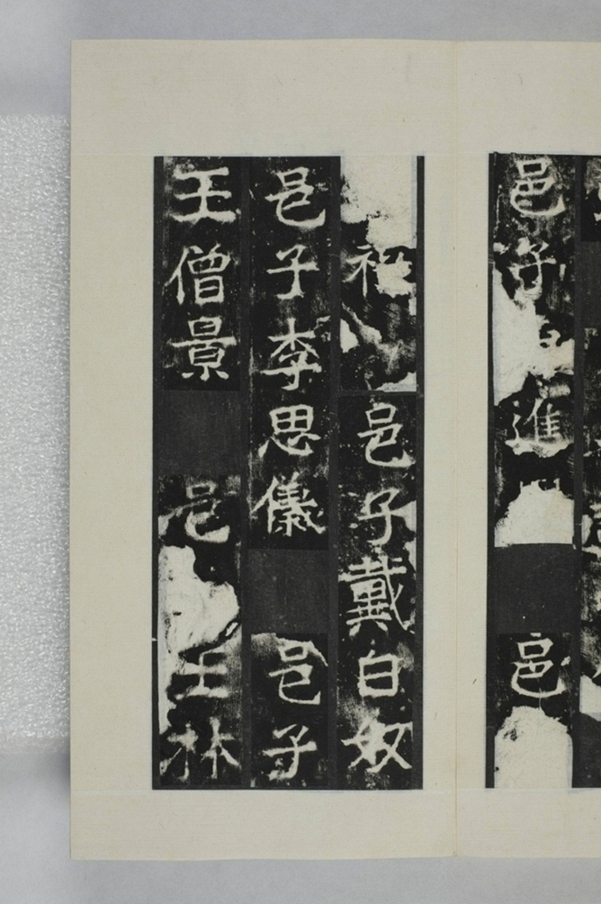 邑子進
邑
邑子戴白奴
邑子李思儀
邑子
王僧景
邑
王林